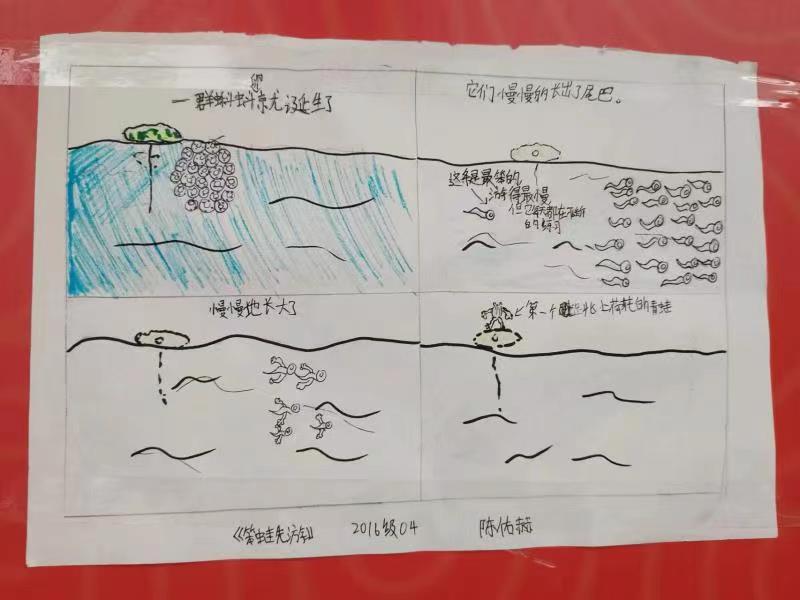 一群蝌蚪卵就诞生了
它们慢慢的长出了尾巴。
这条是最笨的,
游得最慢
但它每天都在不断
的练习
慢慢地长大了
第一个跳上荷花的青蛙
《笨蛙先说》 2016级04 陈佑赫